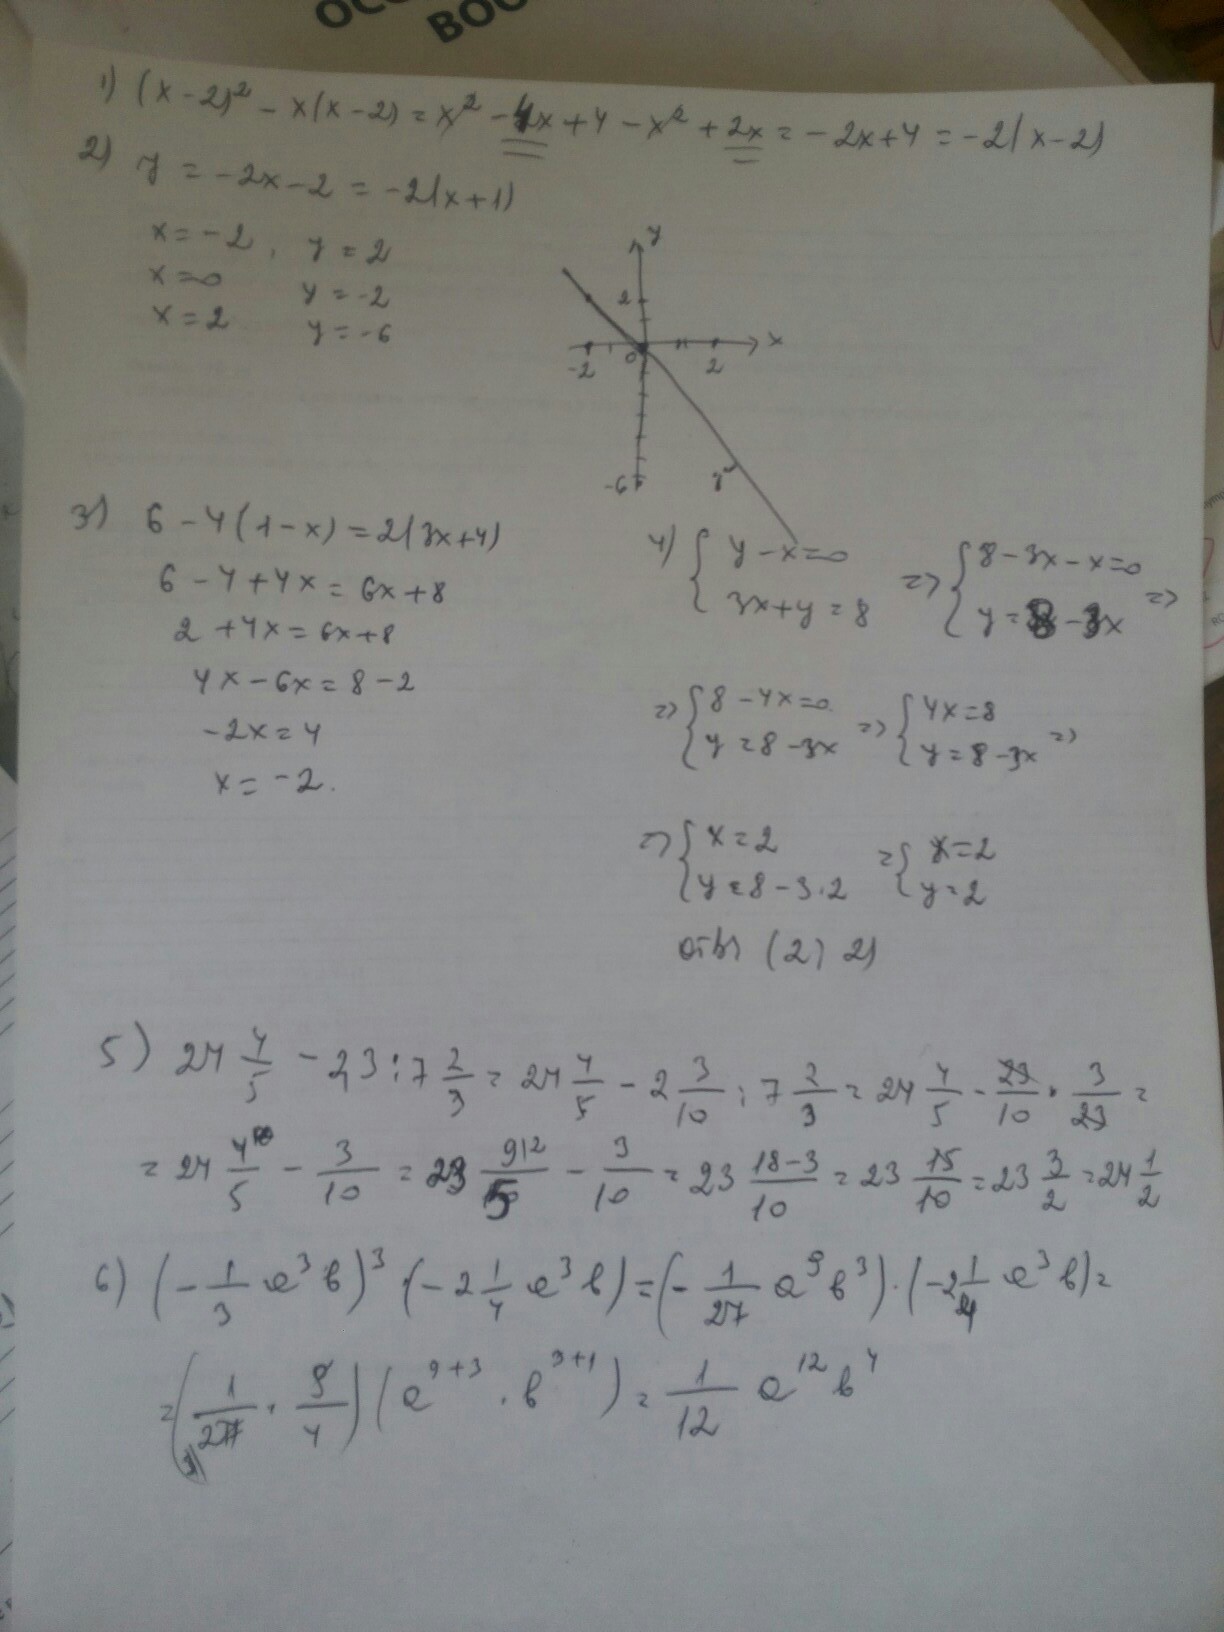 1) (x-2)² - x(x-2) = x² - 4x + 4 - x² + 2x = -2x+4 = -2(x-2)
2) y = -2x-2 = -2(x+1)
x = -2, y = 2
x = 0 y = -2
x = 2 y = -6
y
2
-2 0 2 x
-6
3) 6 - 4(1-x) = 2(3x+4)
6 - 4 + 4x = 6x + 8
2 + 4x = 6x + 8
4x - 6x = 8 - 2
-2x = 4
x = -2.
4) { y - x = 0 => { 8 - 3x - x = 0
3x + y = 8 y = 8 - 3x =>
=> { 8 - 4x = 0 => { 4x = 8
y = 8 - 3x y = 8 - 3x =>
=> { x = 2 = { x = 2
y = 8 - 3·2 y = 2
(2; 2)
5) 24 4/5 - 2,3 : 7 2/3 = 24 4/5 - 2 3/10 : 7 2/3 = 24 4/5 - 23/10 · 3/23 =
= 24 4/5 - 3/10 = 23 9/5 - 3/10 = 23 18-3/10 = 23 15/10 = 23 3/2 = 24 1/2
6) (-1/3 a³b)³ · (-2 1/4 a³b) = (-1/27 a⁹b³) · (-2 1/4 a³b) =
= (1/27 · 9/4) (a⁹⁺³ · b³⁺¹) = 1/12 a¹²b⁴